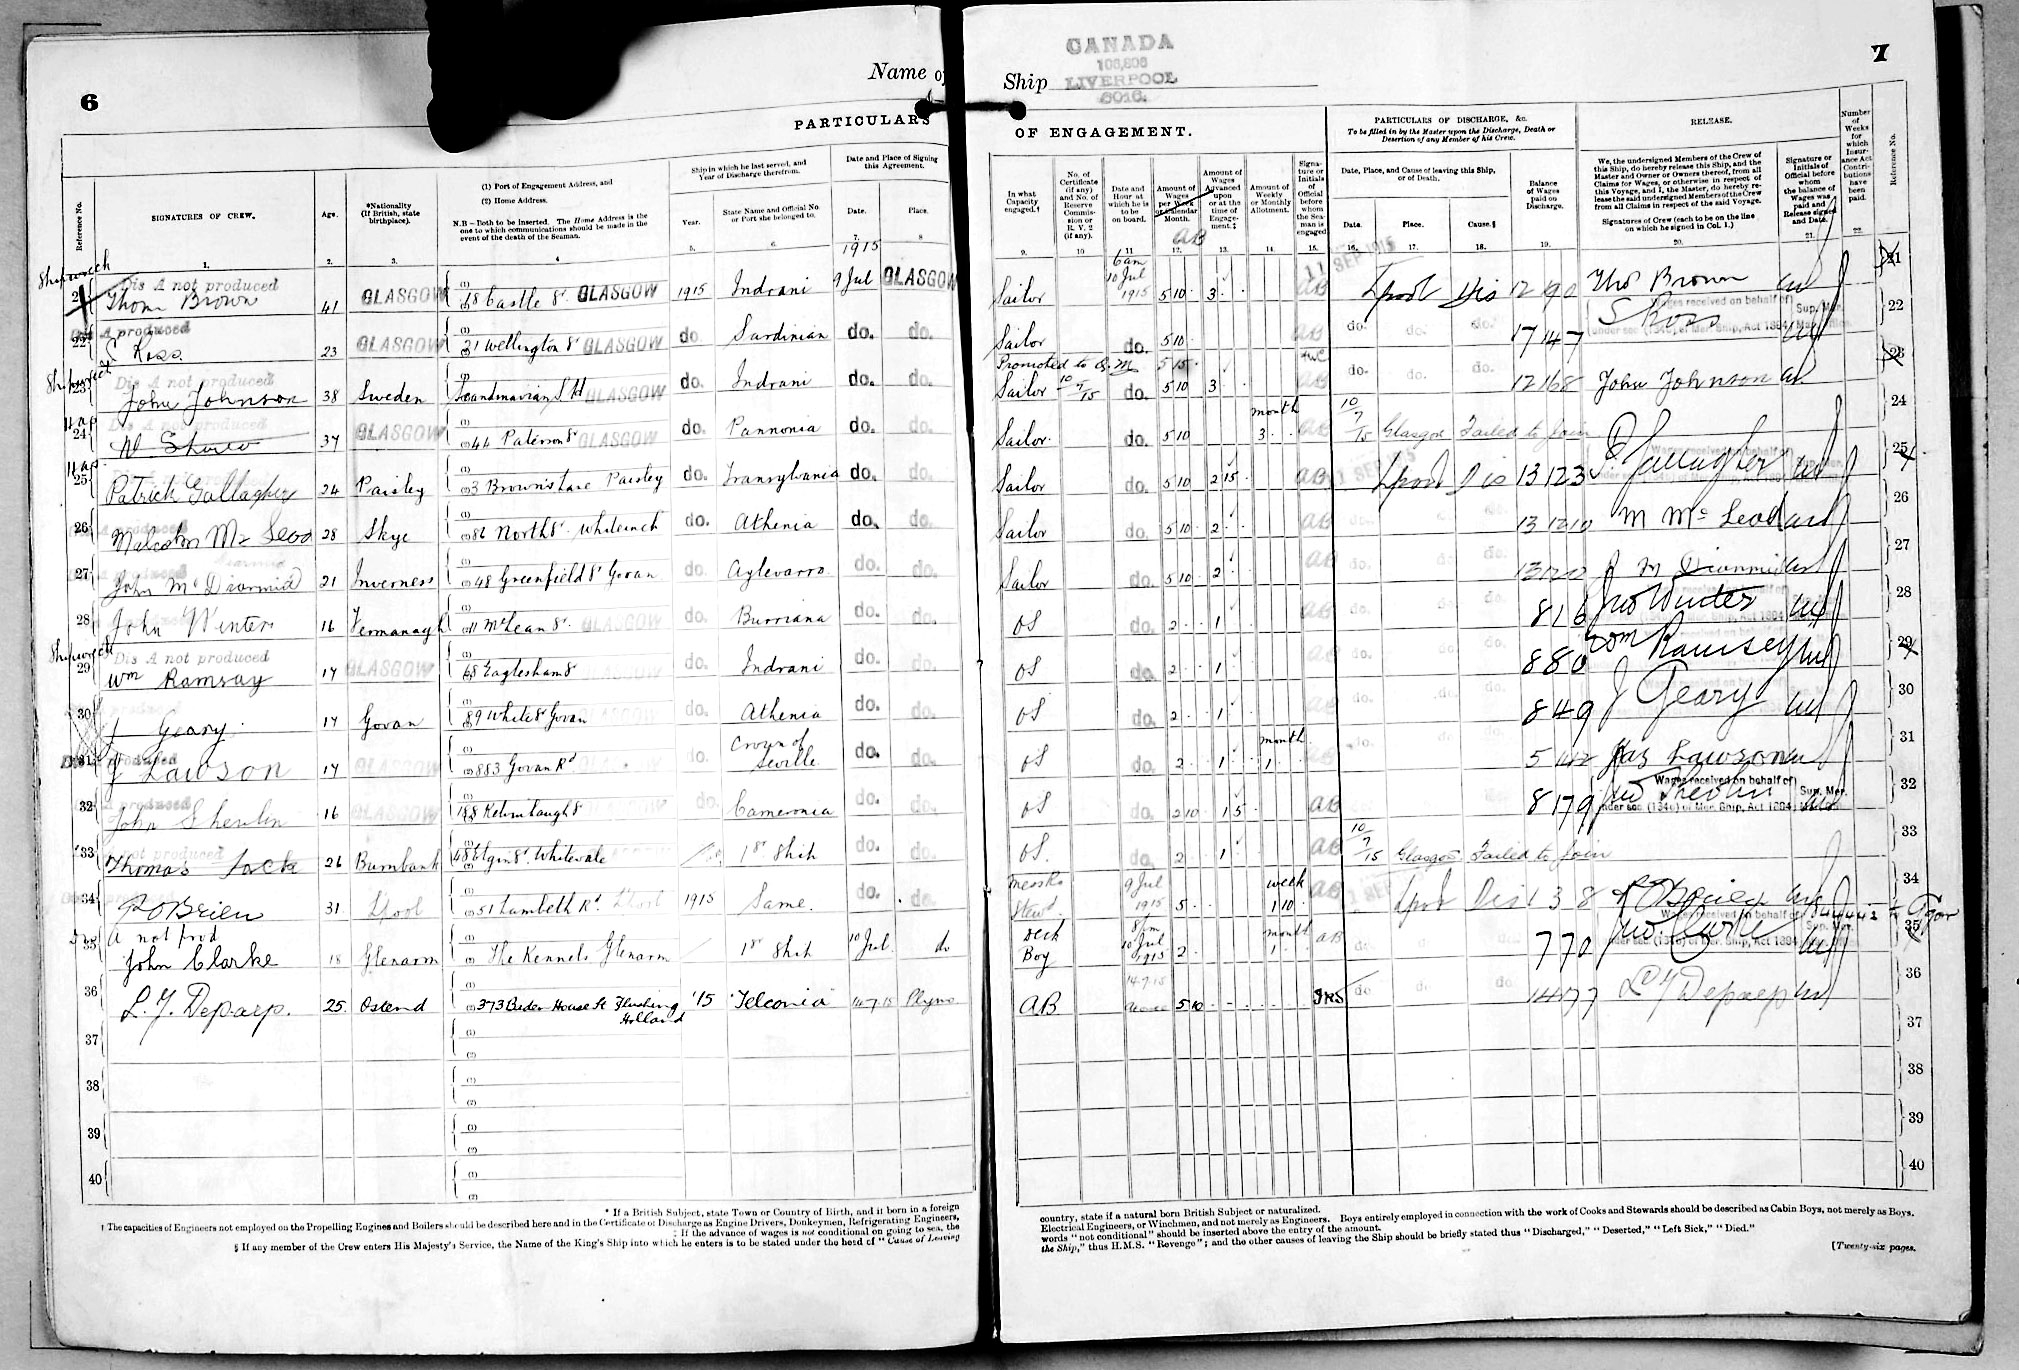 6
Name of
PARTICULARS
Reference No.
SIGNATURES OF CREW.
Age.
*Nationality
(If British, state
birthplace).
(1) Port of Engagement Address, and
(2) Home Address.
N.B – Both to be inserted. The Home Address is the
one to which communications should be made in the
event of the death of the Seaman.
Ship in which he last served, and
Year of Discharge therefrom.
Year.
State Name and Official No.
or Port she belonged to.
Date and Place of Signing
this Agreement.
Date.
Place.
1. 2. 3. 4 5. 6. 7. 8
1915
Shipwreck Dis A not produced
21 Thom Brown 41 GLASGOW (1) (2) 48 Castle St GLASGOW 1915 Indrani 9 Jul GLASGOW
Dis A produced
22 S Ross 23 GLASGOW (1) (2) 21 Wellington St GLASGOW do. Sardinian do. do.
Shipwreck Dis A not produced
23 John Johnson 38 Sweden Scandinavian GLASGOW do. Indrani do. do.
Dis A not produced
24 37 GLASGOW (1) (2) 44 Paterson St GLASGOW do. Pannonia do. do.
25 Patrick Gallagher 24 Paisley (1) (2) 3 Brown's Lane Paisley do. Transylvania do. do.
26 Malcolm Mc Leod 28 Skye (1) (2) 86 North St Whiteinch do. Athenia do. do.
27 John Mc Diarmid 21 Inverness (1) (2) 48 Greenfield St Govan do. do. do.
28 John Winters 16 Fermanagh (1) (2) 11 McLean St GLASGOW do. Burriana do. do.
Shipwreck Dis A not produced
29 Wm Ramsay 17 GLASGOW (1) 68 Eaglesham St do. Indrani do. do.
30 J Geary 17 Govan (1) 89 White St Govan do. Athenia do. do.
31 J Lawson 17 GLASGOW (1) (2) 883 Govan Rd do. Crown of Seville do. do.
A produced
32 John Shevlin 16 GLASGOW (1) 188 Kelvinhaugh St do. Cameronia do. do.
not produced
33 Thomas Jack 26 Burnbank (1) 48 Elgin St. Whitevale 1st Ship do. do.
34 P OBrien 31 Lpool (1) (2) 51 Lambeth Rd Lpool 1915 Same. do. do.
A not prod
35 John Clarke 18 Glenarm (1) (2) The Kennels Glenarm 1st Ship 10 Jul. do
36 L. J. Deparp. 25 Ostend (1) (2) House St Flushing Holland '15 Telconia 14-7-15 Plymo
37 (1) (2)
38 (1) (2)
39 (1) (2)
40 (1) (2)
* If a British Subject, state Town or Country of Birth, and if born in a foreign
† The capacities of Engineers not employed on the Propelling Engines and Boilers should be described here and in the Certificate of Discharge as Engine Drivers, Donkeymen, Refrigerating Engineers,
‡ If the advance of wages is not conditional on going to sea, the
§ If any member of the Crew enters His Majesty's Service, the Name of the King's Ship into which he enters is to be stated under the head of "Cause of Leaving
7
Ship
CANADA
LIVERPOOL
6016.
OF ENGAGEMENT.
In what
Capacity
engaged.†
No. of
Certificate
(if any)
and No. of
Reserve
Commis-
sion or
R. V. 2
(if any).
Date and
Hour at
which he is
to be
on board.
Amount of
Wages
per Week
or Calendar
Month.
Amount of
Wages
Advanced
upon
or at the
time of
Engage-
ment.‡
Amount of
Weekly
or Monthly
Allotment.
Signa-
ture or
Initials
of
Official
before
whom
the Sea-
man is
engaged
PARTICULARS OF DISCHARGE, &c.
To be filled in by the Master upon the Discharge, Death or
Desertion of any Member of his Crew.
Date, Place, and Cause of leaving this Ship,
or of Death.
Date.
Place.
Cause.§
Balance
of Wages
paid on
Discharge.
RELEASE.
We, the undersigned Members of the Crew of
this Ship, do hereby release this Ship, and the
Master and Owner or Owners thereof, from all
Claims for Wages, or otherwise in respect of
this Voyage, and I, the Master, do hereby re-
lease the said undersigned Members of the Crew
from all Claims in respect of the said Voyage.
Signatures of Crew (each to be on the line
on which he signed in Col. 1.)
Signature or
Initials of
Official before
whom
the balance of
Wages was
paid and
Release signed
and Date.
Number
of
Weeks
for
which
Insur-
ance Act
Contri-
butions
have
been
paid.
Reference No.
9. 10 11 12. 13. 14. 15. 16. 17. 18. 19. 20. 21. 22.
Sailor 6am 10 Jul 1915 5 10 3 AB 11 SEP 1915 Lpool Dis 12 9 0 Thos Brown 21
Sailor do. 5 10 AB do. do. do. 17 14 7 S Ross Wages received on behalf of Sup. Mer. 22
Promoted to Q.M 5 15
Sailor 10/7/15 do. 5 10 3 AB do. do. do. 12 16 8 John Johnson 23
Sailor. do. 5 10 month 3 AB 10/7/15 Glasgow Failed to join 24
Sailor do. 5 10 2 15 AB Lpool Dis 13 12 3 P. Gallagher 25
Sailor do. 5 10 2 AB 13 12 10 M Mc Leod 26
Sailor do. 5 10 2 AB do. do. do. J Mc Diarmid 27
OS do. 2 1 AB do. do. do. 8 1 6 Jno Winters 28
OS do. 2 1 do. do. do. 8 8 0 Wm Ramsey 29
OS do. 2 1 do. do. do. 8 4 9 J Geary 30
OS do. 2 1 month 1 do. 5 14 2 Jas Lawson 31
OS do. 2 10 1 5 AB 8 17 9 Jno Shevlin Wages received on behalf of under sec. (1340) of Mer. Ship, Act 1894, Sup. Mer. 32
OS. do. 2 1 AB 10/7/15 Glasgow Failed to join 33
Stewd. 9 Jul 1915 5 week 1 10 AB Lpool Dis 1 3 8 P OBrien 34
Deck Boy 8pm 10 Jul 1915 2 month 1 AB do do. 7 7 0 Jno. Clarke 35
AB 14-7-15 5 10 do do 14 17 7 L J Deparp 36
37
38
39
40
country, state if a natural born British Subject or naturalized.
Electrical Engineers, or Winchmen, and not merely as Engineers. Boys entirely employed in connection with the work of Cooks and Stewards should be described as Cabin Boys, not merely as Boys.
words "not conditional" should be inserted above the entry of the amount.
the Ship," thus H.M.S. "Revenge"; and the other causes of leaving the Ship should be briefly stated thus "Discharged," "Deserted," "Left Sick," "Died."
[Twenty-six pages.